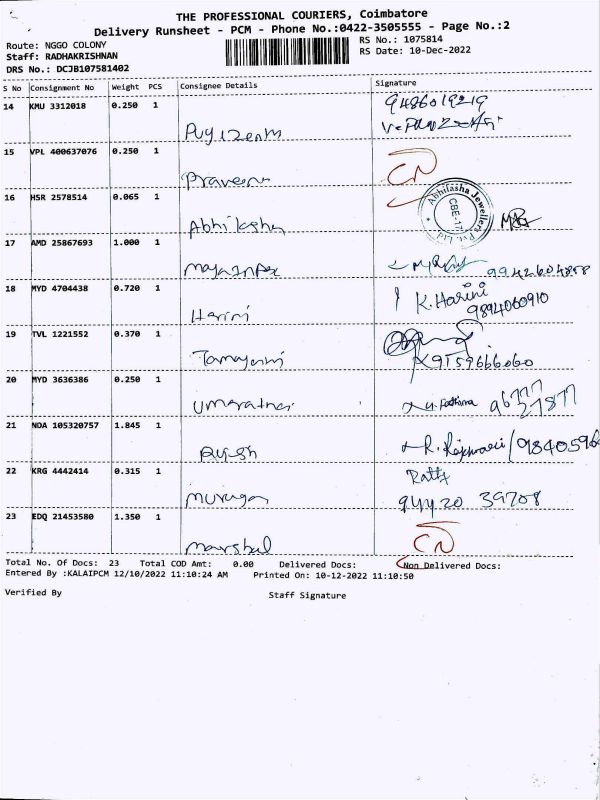 THE PROFESSIONAL COURIERS, Coimbatore
Delivery Runsheet - PCM - Phone No.:0422-3505555 - Page No.:2
Route: NGGO COLONY
RS No.: 1075814
Staff: RADHAKRISHNAN
RS Date: 10-Dec-2022
DRS No.: DCJB107581402
S No Consignment No Weight PCS Consignee Details Signature
14 KMU 3312018 0.250 1
9486019219
15 VPL 400637076 0.250 1 Praveen CN
16 HSR 2578514 0.065 1 Abhilasha
Abhilasha Jewellers Pvt. Ltd. CBE-17
17 AMD 25867693 1.000 1
18 MYD 4704438 0.720 1 Harini K.Harini
9894060910
19 TVL 1221552 0.370 1
9159666060
20 MYD 3636386 0.250 1 Fathima 96777
27877
21 NDA 105320757 1.845 1 R.
22 KRG 4442414 0.315 1 Murugan
94420 39708
23 EDQ 21453580 1.350 1 Marshal CN
Total No. Of Docs: 23 Total COD Amt: 0.00 Delivered Docs: Non Delivered Docs:
Entered By :KALAIPCM 12/10/2022 11:10:24 AM Printed On: 10-12-2022 11:10:50
Verified By Staff Signature